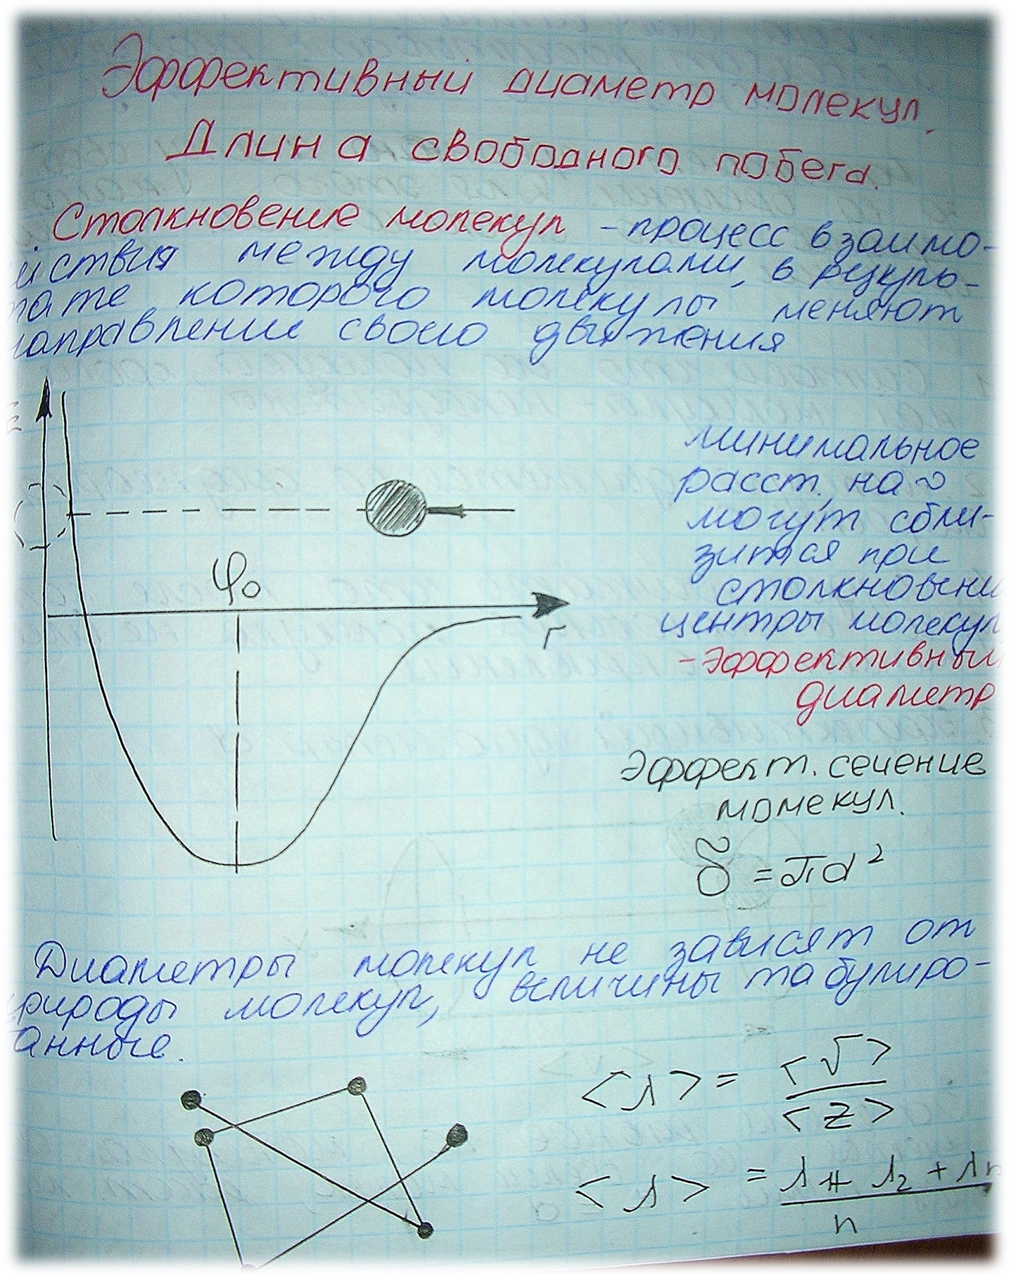 Эффективный диаметр молекул.
Длина свободного побега.
Столкновение молекул - процесс взаимо-
йствия между молекулами, в резуль-
тате которого молекулы меняют
направление своего движения
E
минимальное
расст. на ~
могут сбли-
зится при
столкновени
центры молекул
φ₀
r
-эффективный
диаметр
Эффект. сечение
момекул.
δ = πd²
Диаметры молекул не зависят от
природы молекул, величины табулиро-
анные.
<λ> = <√> / <z>
<λ> = λ1+ λ2 + λn / n